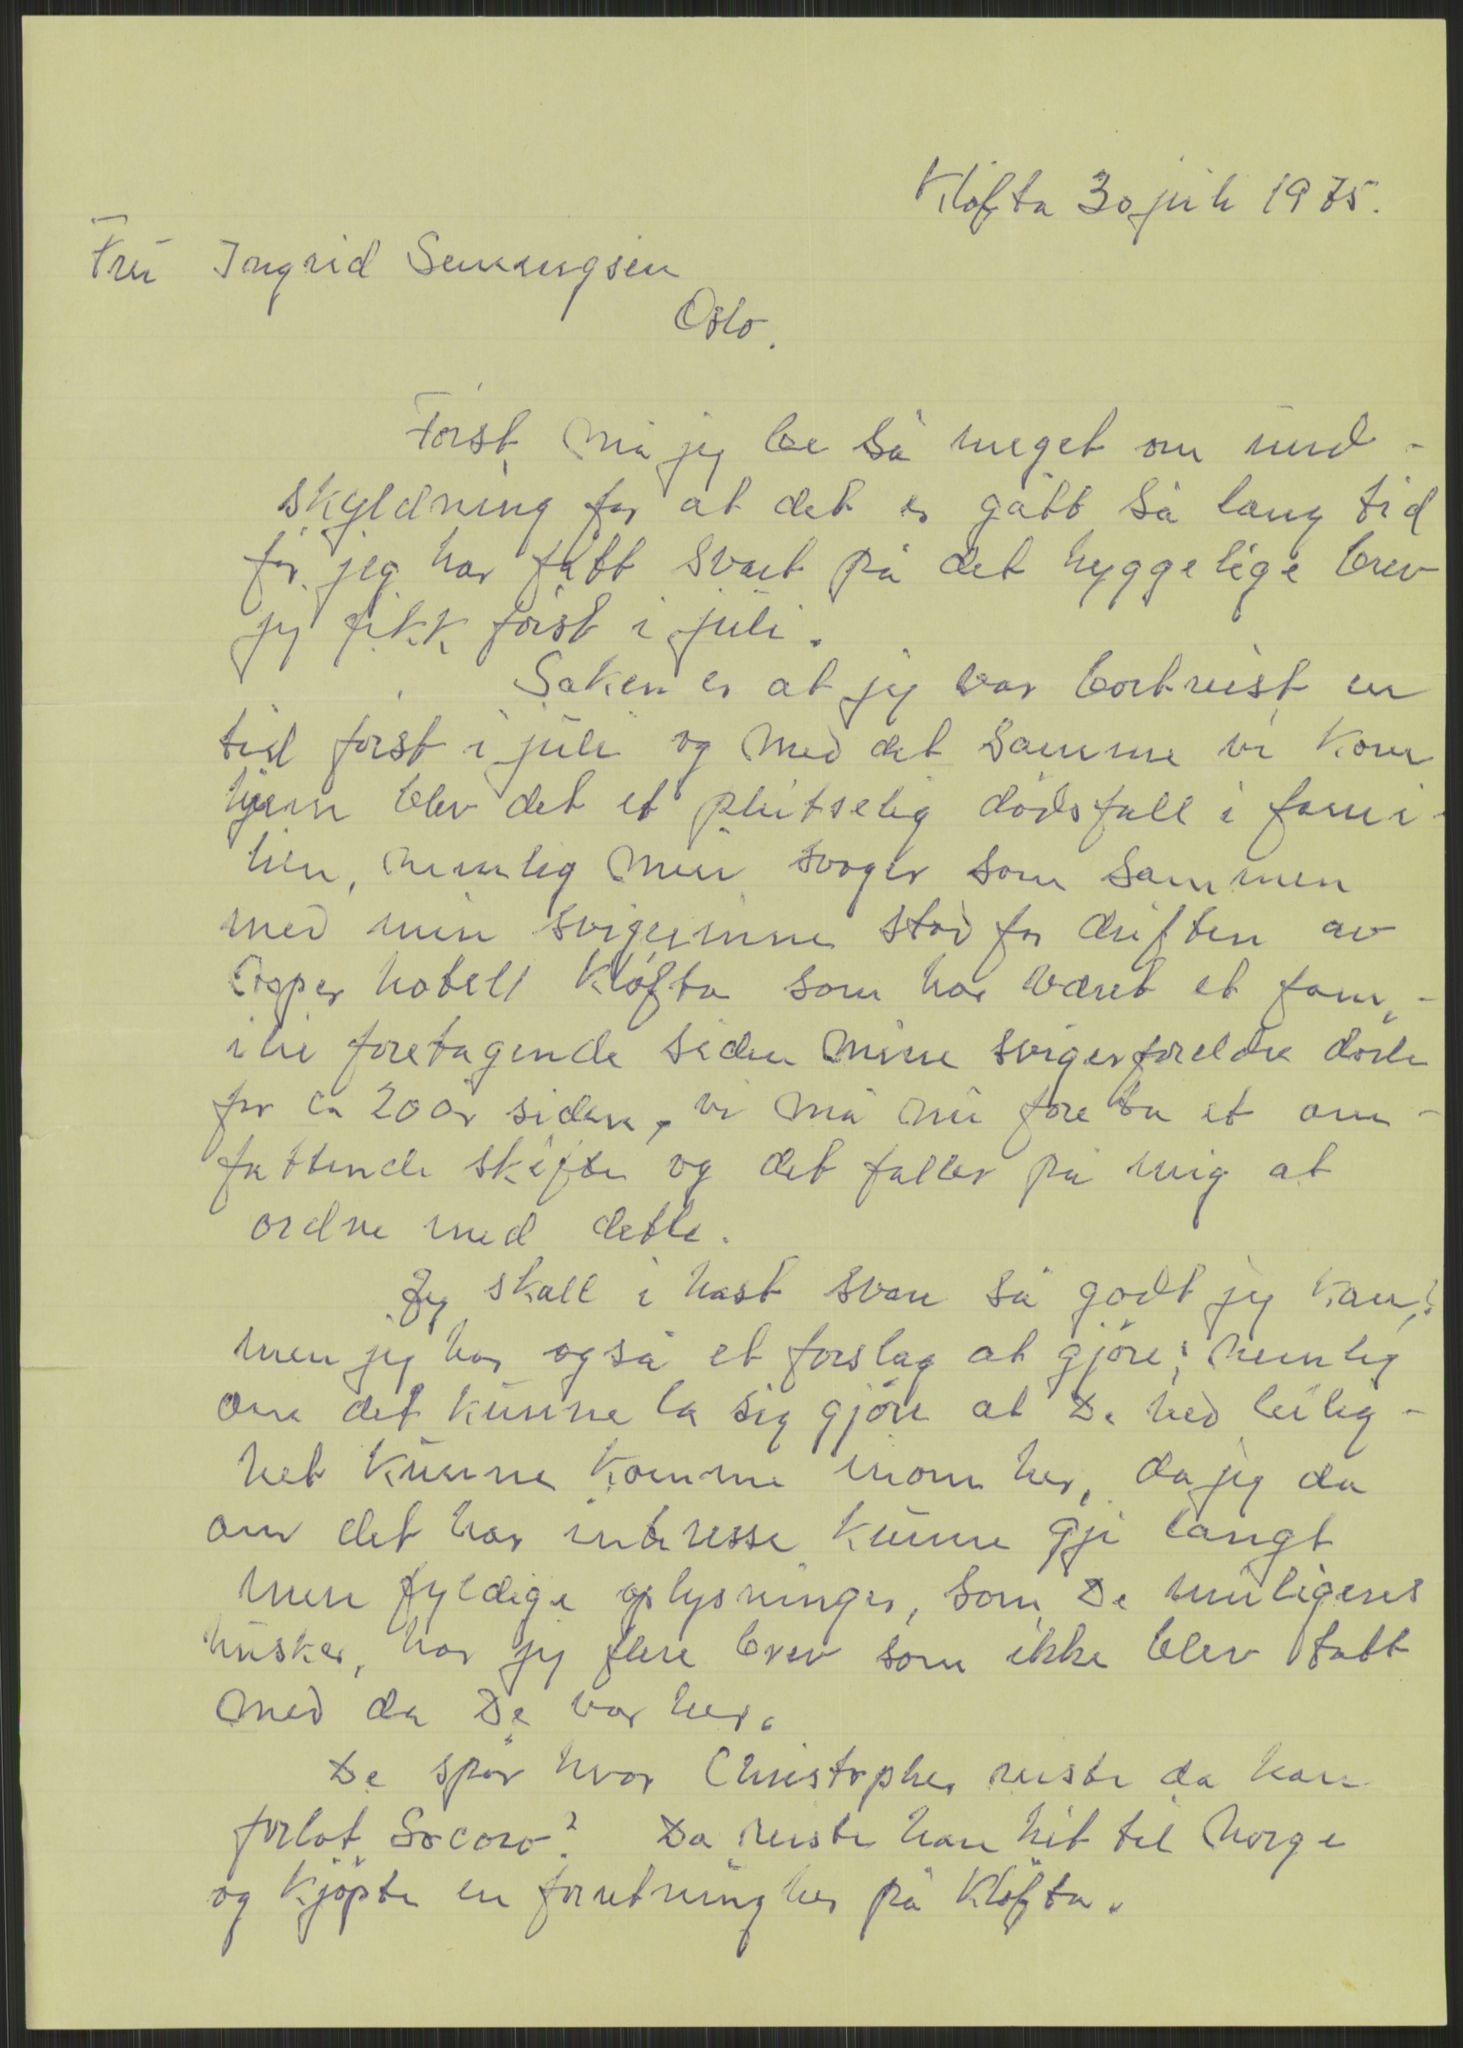 Kløfta 30 juli 1975.
Fru Ingrid Semmingsen
Oslo.
Först må jeg be så meget om und-
skyldning for at det er gått så lang tid
før jeg har fått svart på det hyggelige brev
jeg fikk först i juli.
Saken er at jeg var bortreist en
tid först i juli og med det samme vi kom
hjem blev det et plutselig dödsfall i fami-
lien, nemlig min svoger som sammen
med min svigerinne stod for driften av
hotell Kløfta som har været et fam-
ilie foretagende siden mine svigerforeldre døde
for ca 20 år siden, vi må nu foreta et om-
fattende skifte og det faller på mig at
ordne med dette.
Jeg skall i hast svare så godt jeg kan,
men jeg har også et forslag at gjöre; nemlig
om det kunne la sig gjöre at De ved leilig-
het kunne komme inom her, da jeg da
om det har interesse kunne gji langt
mere fyldige oplysninger, som De muligens
husker, har jeg flere brev som ikke blev tatt
med da De var her.
De spör hvor Christopher reiste da han
forlot Socoro? Da reiste han hit til Norge
og kjöpte en forretning her på Kløfta.